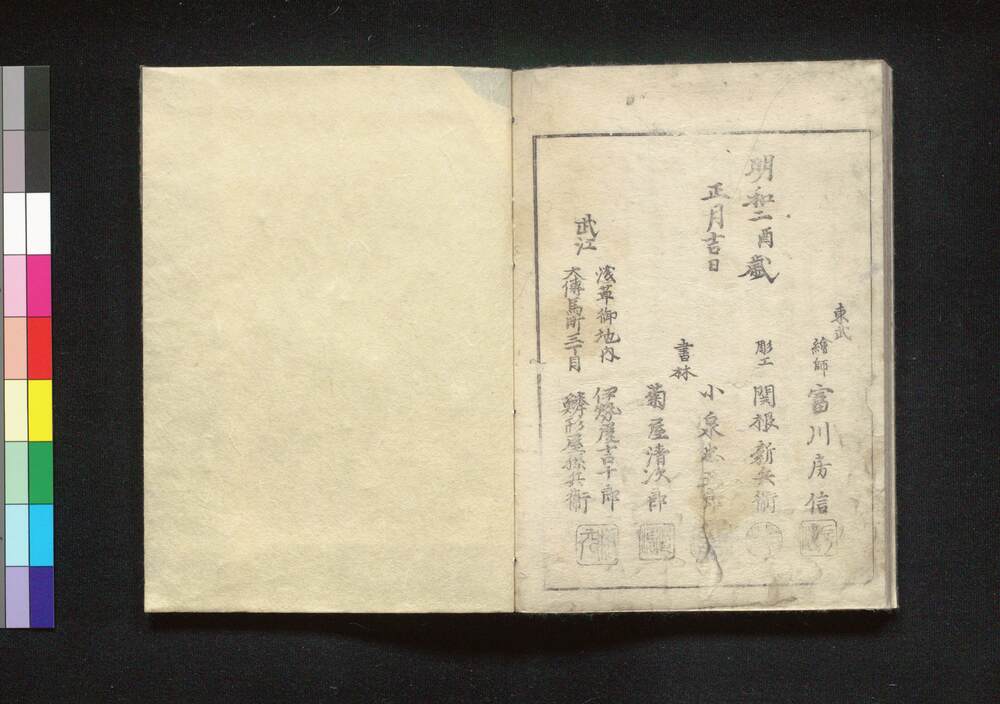 東武
繪師 富川房信
明和二酉歳
彫工 関根新兵衛
正月吉日
小泉忠五郎
書林
菊屋清次郎
武江
浅草御地内 伊勢屋吉十郎
大傳馬町三丁目 鱗形屋孫兵衛